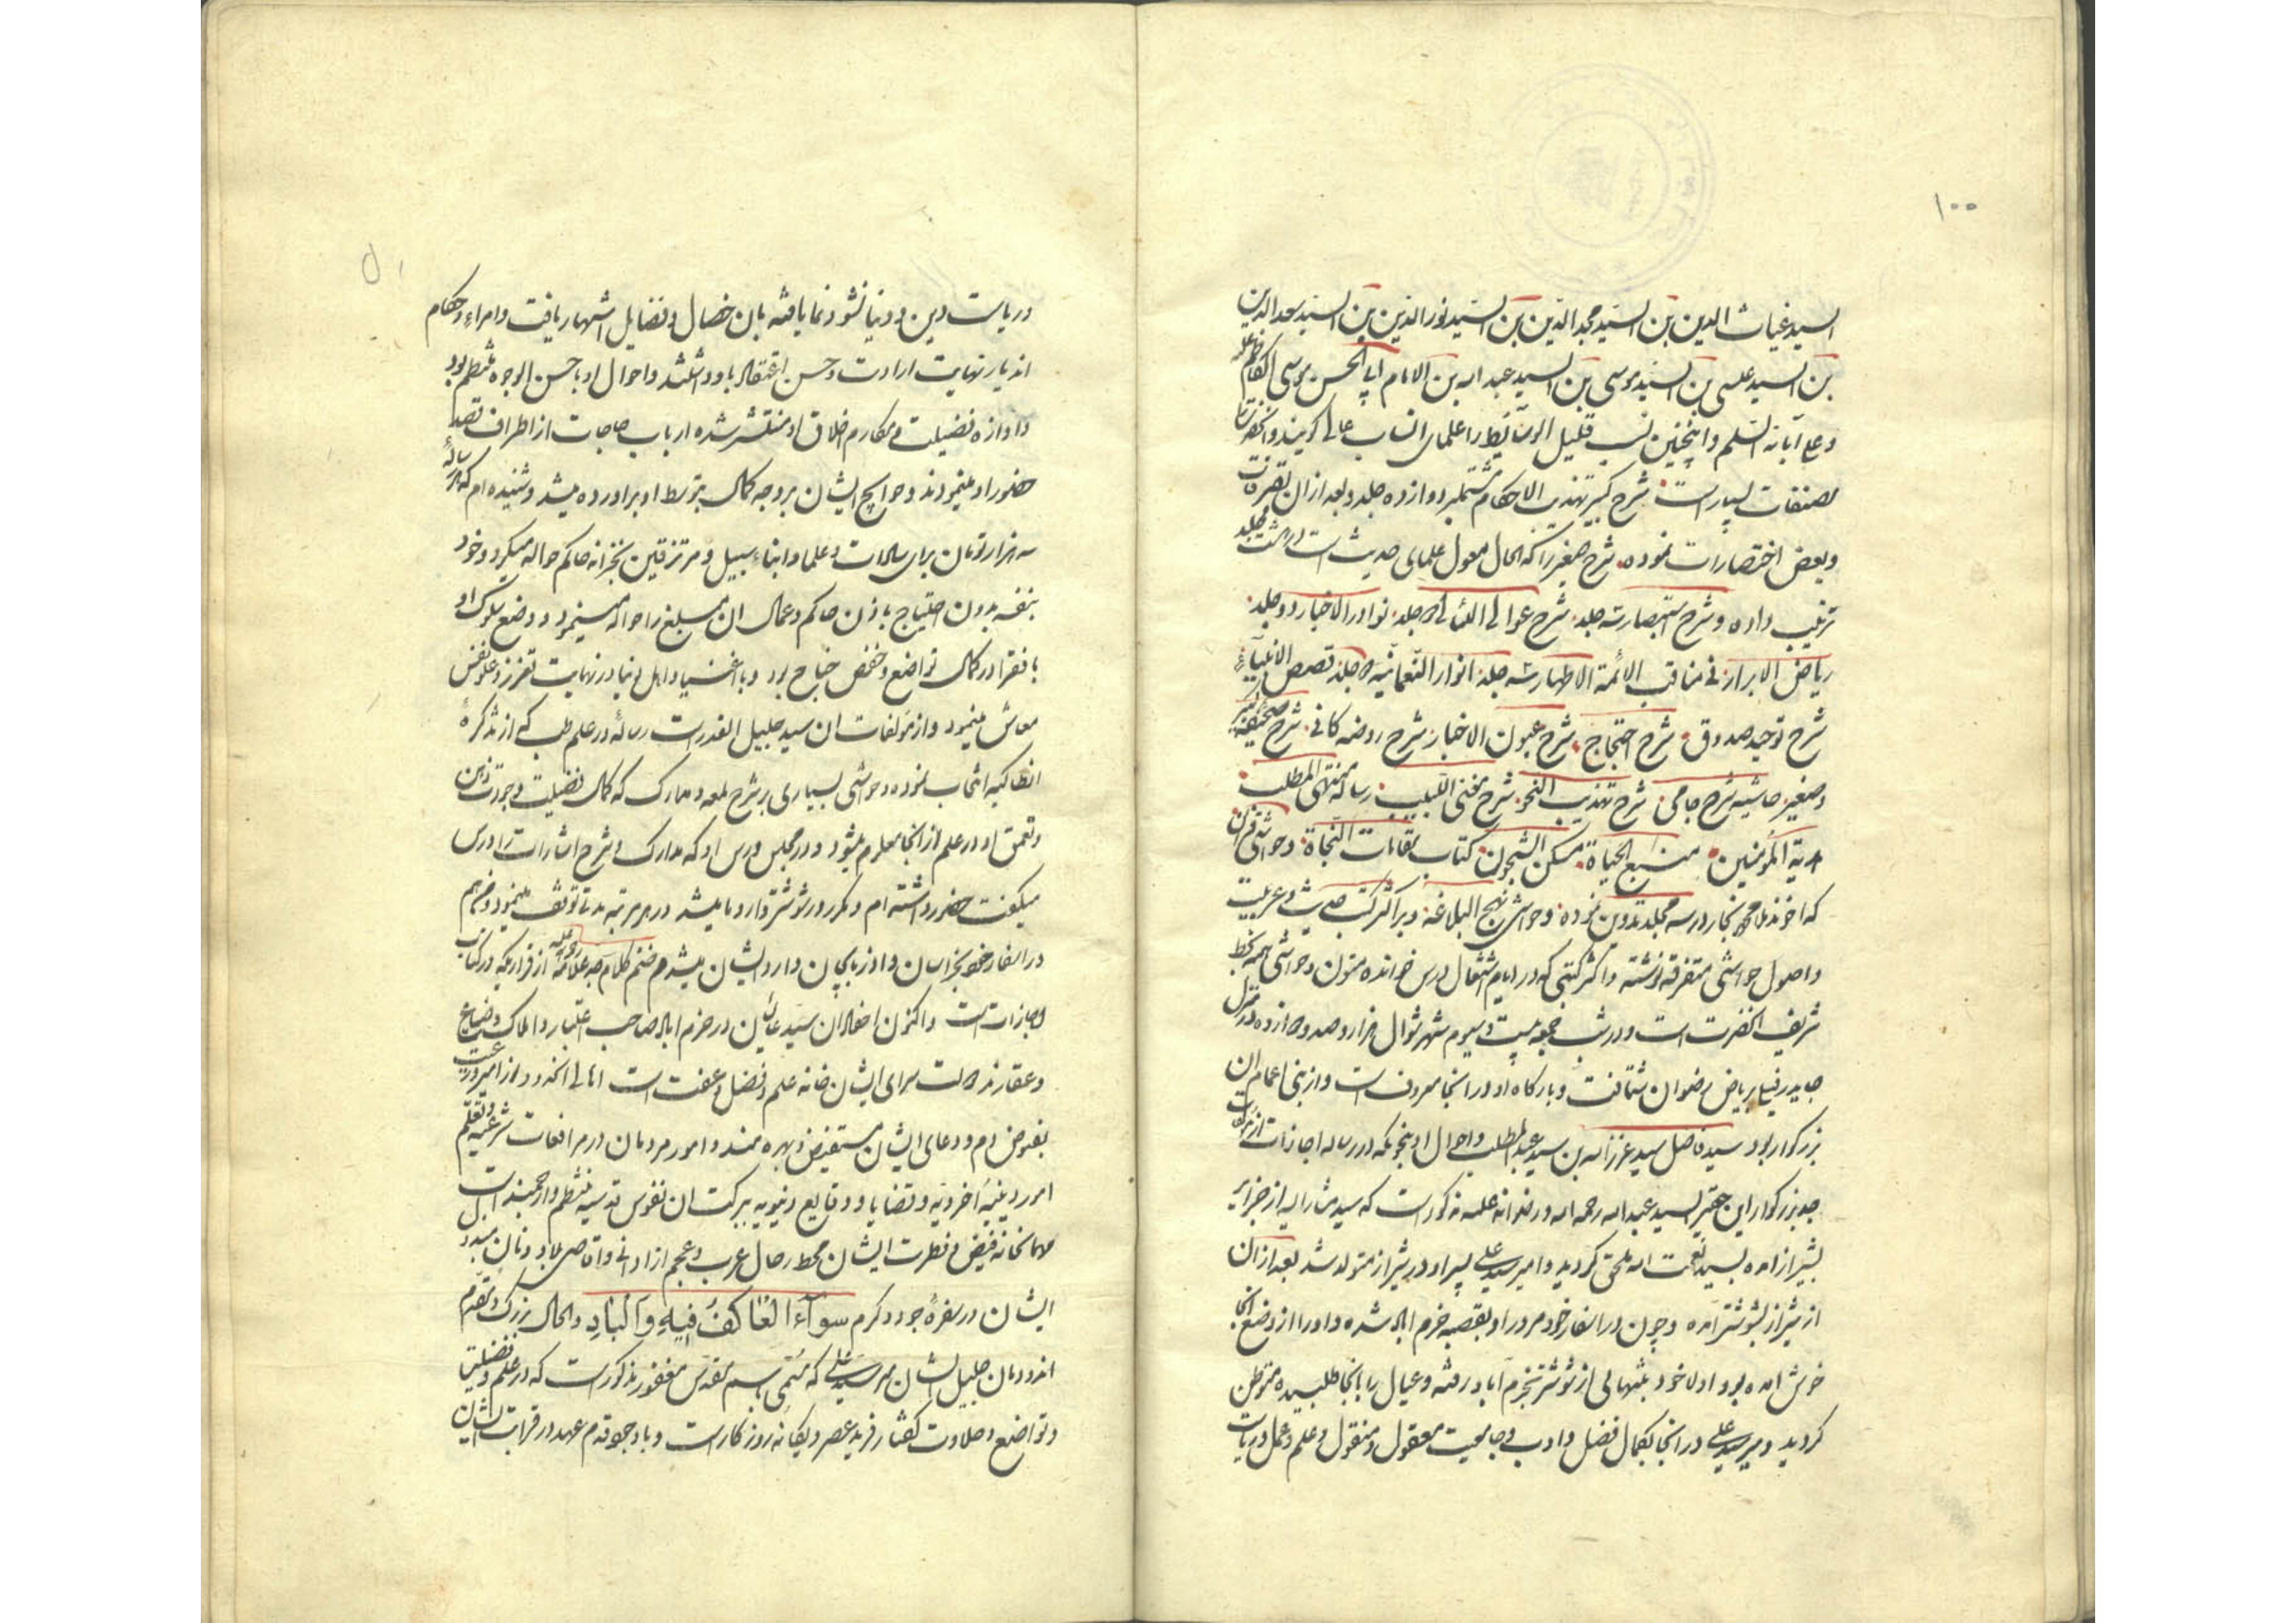 ۱۰۰
السید غیاث الدین بن السید مجد الدین بن السید نور الدین بن السید سعد الدین
بن السید عیسی بن السید موسی بن السید عبد الله بن الامام ابی الحسن موسی الکاظم علیه
و علی آبائه السلم و اینچنین نسب قلیل الوسائط را علمای انساب عالی گویند و آنحضرت را
مصنفات بسیار است شرح کبیر تهذیب الاحکام مشتمل بر دوازده جلد و بعد از آن تصرفات
و بعض اختصارات نموده شرح صغیر را که الحال معول علمای حدیث است در هشت مجلد
ترتیب داده و شرح استبصار سه جلد شرح عوالی اللئالی دو جلد نوادر الاخبار دو جلد
ریاض الابرار فی مناقب الائمة الاطهار سه جلد انوار النعمانیه دو جلد قصص الانبیاء
شرح توحید صدوق شرح احتجاج شرح عیون الاخبار شرح روضه کافی شرح صحیفه کبیر
و صغیر حاشیه شرح جامی شرح تهذیب النحو شرح مغنی اللبیب رساله منتهی المطلب
هدیة المؤمنین منبع الحیاة مسکن الشجون کتاب مقامات النجاة و حواشی قرآن
که اخوند ملا محمد نجار در سه مجلد تدوین نموده و حواشی نهج البلاغه و بر اکثر کتب حدیث و عربیت
و اصول حواشی متفرقه نوشته و اکثر کتبی که در ایام اشتغال درس خوانده متون و حواشی همه بخط
شریف آنحضرت است و در شب جمعه بیست و سیوم شهر شوال هزار و صد و دوازده در منزل
جایدر فیلی بریاض رضوان شتافت و بارگاه او در آنجا معروف است و از بنی اعمام آن
بزرگوار بود سید فاضل سید عزیز الله بن سید عبد المطلب و احوال او بنحویکه در رساله اجازات از مؤلفات
جد بزرگوار این حقیر السید عبد الله رحمه الله و رضوانه علیه مذکور است که سید مشار الیه از جزایر
بشیراز آمده بسید نعمت الله ملحق گردید و امیر سید علی پسر او در شیراز متولد شد بعد از آن
از شیراز بشوشتر آمده و چون در اسفار خود مرور او بقصبه خرم اباد شده و او را از وضع آنجا
خوش آمده بود اولا خود بتنهائی از شوشتر بخرم آباد رفته و عیال را بانجا طلبیده متوطن
گردید و میر سید علی در آنجا بکمال فضل و ادب و جامعیت معقول و منقول و علم و عمل و ریاست
در ریاست دین و دنیا نشو و نما یافته بان خصال و فضایل اشتهار یافت و امراء و حکام
اندیار نهایت ارادت و حسن اعتقاد باو داشتند و احوال او باحسن الوجوه منتظم بود
و آوازه فضیلت و مکارم اخلاق او منتشر شده ارباب حاجات از اطراف قصد
حضور او مینمودند و حوایج ایشان بر وجه کمال بتوسط او برآورده میشد و شنیده ام که هر ساله
سه هزار تومان برای سادات و علما و ابناء سبیل و مرتزقین بخزانه حاکم حواله میکرد و خود
بنفسه بدون احتیاج باذن حاکم و عمال آن مبلغ را حواله مینمود و وضع سلوک او
با فقرا در کمال تواضع و خفض جناح بود و با اغنیا و اهل دنیا در نهایت تعزز و علو نفس
معاش مینمود و از مؤلفات آن سید جلیل القدر است رساله در علم طب که از تذکرهٔ
انطاکیه انتخاب نموده و حواشی بسیاری بر شرح لمعه و مدارک که کمال فضیلت و جودت ذهن
و تعمق او در علم از آنجا معلوم میشود و در مجلس درس او که مدارک و شرح اشارات را درس
میگفت حضور داشته ام و مکرر در شوشتر وارد ما میشد در هر مرتبه مدتها توقف مینمود و من هم
در اسفار خود بخراسان و اذربایجان وارد ایشان میشدم ختم کلام جد علامه رحمة الله علیه از قراریکه در کتاب
اجازات است و اکنون احفاد آن سید عالیشان در خرم اباد صاحب اعتبار و املاک و ضیاع
و عقارند و دولت سرای ایشان خانه علم و فضل و عفت است اهالی آنحدود از امیر و رعیت
بفیوض دم و دعای ایشان مستفیض و بهره مند و امور مردمان در مرافعات شرعیه و تعلّم
امور دینیه اخرویه و قضایا و وقایع دنیویه ببرکت آن نفوس قدسیه منتظم و ارجمند است
مهمانخانه فیض فطرت ایشان محط رحال عرب و عجم از ادانی و اقاصی بلاد و نان
ایشان در سفرهٔ جود و کرم سوآءً العاکف فیه والباد و الحال بزرگ و مقدم
اندودمان جلیل الشان میر سید علی که مسمی باسم مقدس مغفور مذکور است که در علم و فضیلت
و تواضع و حلاوت گفتار فرید عصر و یگانه روزگار است و باوجود قدم عهد در قرابت ایشان